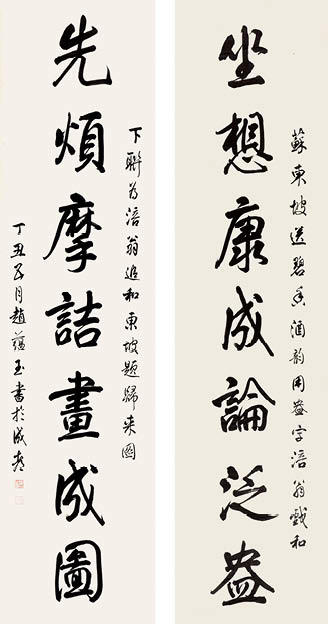 蘇東坡送碧香酒韵用盎字涪翁戲和
坐想康成論泛盎
下聯为涪翁追和東坡題歸来圖
先煩摩詰畫成圖
丁丑五月趙蘊玉書於成都